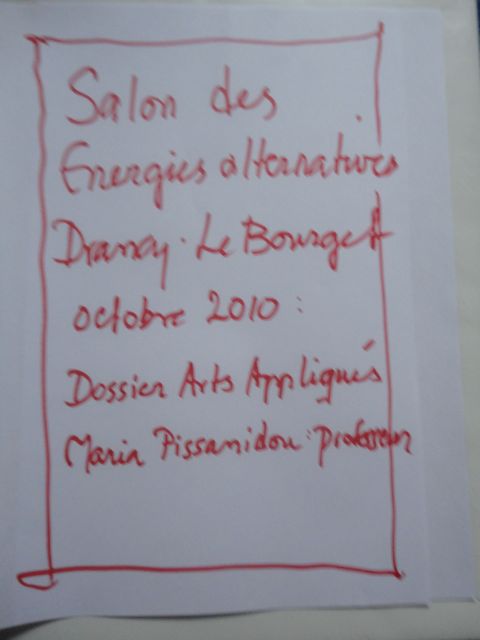 Salon des
Energies alternatives
Drancy. Le Bourget
octobre 2010 :
Dossier Arts Appliqués
Maria Pissanidou : professeur